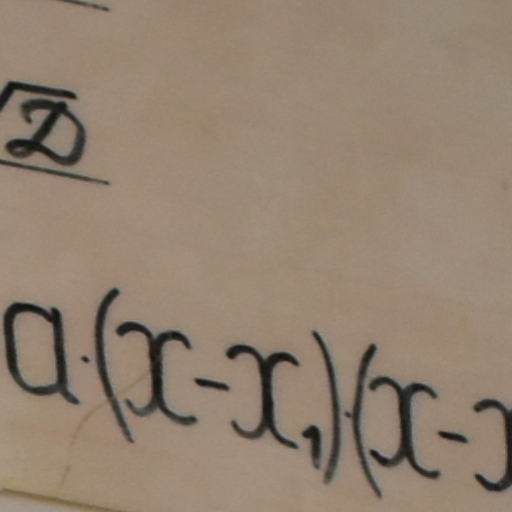 √D
a·(x-x₁)·(x-x